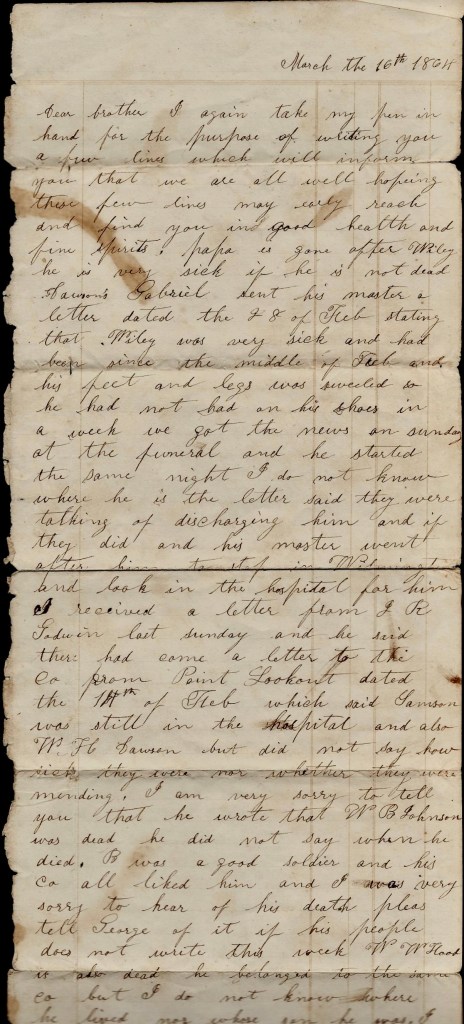 March the 16th 1864
Dear brother I again take my pen in
hand for the purpose of writing you
a few lines which will inform
you that we are all well hopeing
these few lines may early reach
and find you in good health and
fine spirits. papa is gone after Wiley
he is very sick if he is not dead
Dawson's Gabriel sent his master a
letter dated the 28 of Feb stating
that Wiley was very sick and had
been since the middle of Feb and
his feet and legs was sweeled so
he had not had on his shoes in
a week we got the news on sunday
at the funeral and he started
the same night I do not know
where he is the letter said they were
talking of discharging him and if
they did and his master went
after him to stop in
and look in the hospital for him
I received a letter from J R
Godwin last sunday and he seid
there had come a letter to the
Co from Point Lookout dated
the 14th of Feb which said Samson
was still in the hospital and also
W. H Dawson but did not say how
sick they were nor whether they were
mending. I am very sorry to tell
you that he wrote that W B Johnson
was dead he did not say when he
died. B was a good soldier and his
Co all liked him and I was very
sorry to hear of his death pleas
tell George of it if his people
does not write this week W W Flood
is also dead he belonged to the same
co but I do not know where
he lived nor whose son he was. I